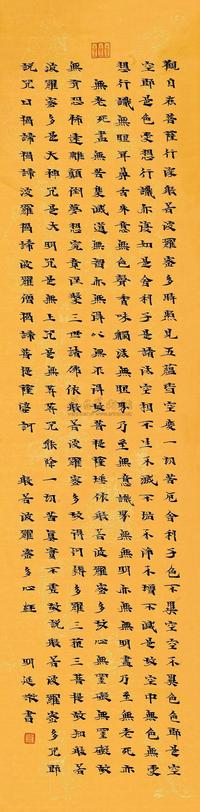 觀自在菩薩行深般若波羅蜜多時照見五蘊皆空度一切苦厄舍利子色不異空空不異色色即是空
空即是色受想行識亦復如是舍利子是諸法空相不生不滅不垢不淨不增不減是故空中無色無受
想行識無眼耳鼻舌身意無色聲香味觸法無眼界乃至無意識界無無明亦無無明盡乃至無老死亦
無老死盡無苦集滅道無智亦無得以無所得故菩提薩埵依般若波羅蜜多故心無罣礙無罣礙故
無有恐怖遠離顛倒夢想究竟涅槃三世諸佛依般若波羅蜜多故得阿耨多羅三藐三菩提故知般若
波羅蜜多是大神咒是大明咒是無上咒是無等等咒能除一切苦真實不虛故說般若波羅蜜多咒即
說咒曰揭諦揭諦波羅揭諦波羅僧揭諦菩提薩婆訶 般若波羅蜜多心經 明延書